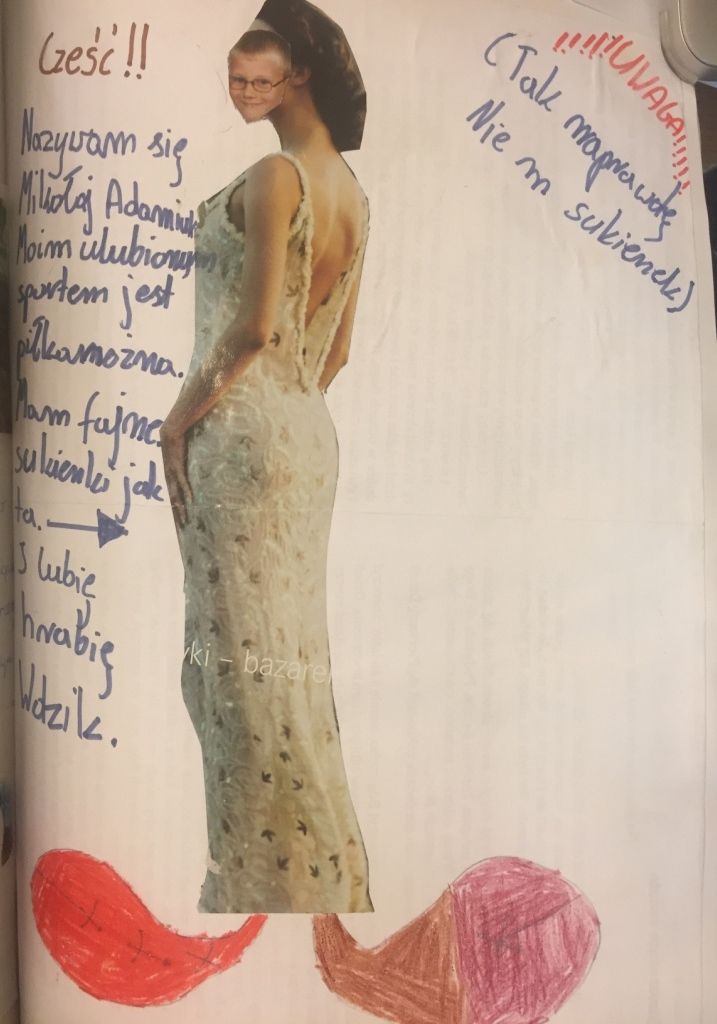 Cześć!!
Nazywam się
Mikołaj Adamiuk
Moim ulubionym
sportem jest
piłkamożna.
Mam fajne
sukienki jak
ta.
I lubię
hrabię
!!!!!UWAGA!!!!!
(Tak naprawdę
Nie m sukienek)
yki – bazarek